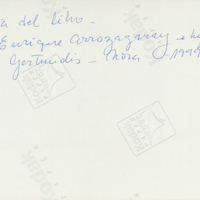 a del libro -
Enrique Arrozagaray - e h
Gertrudis - Mora - 1999
Kodak